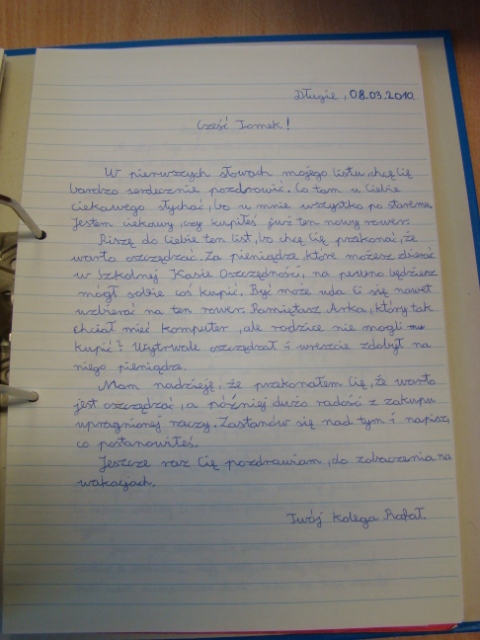 Długie, 08.03.2010.
Cześć Tomek!
W pierwszych słowach mojego listu chcę Cię
bardzo serdecznie pozdrowić. Co tam u Ciebie
ciekawego słychać, bo u mnie wszystko po staremu.
Jestem ciekawy, czy kupiłeś już ten nowy rower.
Piszę do Ciebie ten list, bo chcę Cię przekonać, że
warto oszczędzać. Za pieniądze, które możesz zbierać
w Szkolnej Kasie Oszczędności, na pewno będziesz
mógł sobie coś kupić. Być może uda Ci się nawet
uzbierać na ten rower. Pamiętasz Arka, który tak
chciał mieć komputer, ale rodzice nie mogli mu
kupić? Wytrwale oszczędzał i wreszcie zdobył na
niego pieniądze.
Mam nadzieję, że przekonałem Cię, że warto
jest oszczędzać, a później dużo radości z zakupu
upragnionej rzeczy. Zastanów się nad tym i napisz,
co postanowiłeś.
Jeszcze raz Cię pozdrawiam, do zobaczenia na
wakacjach.
Twój kolega Rafał.